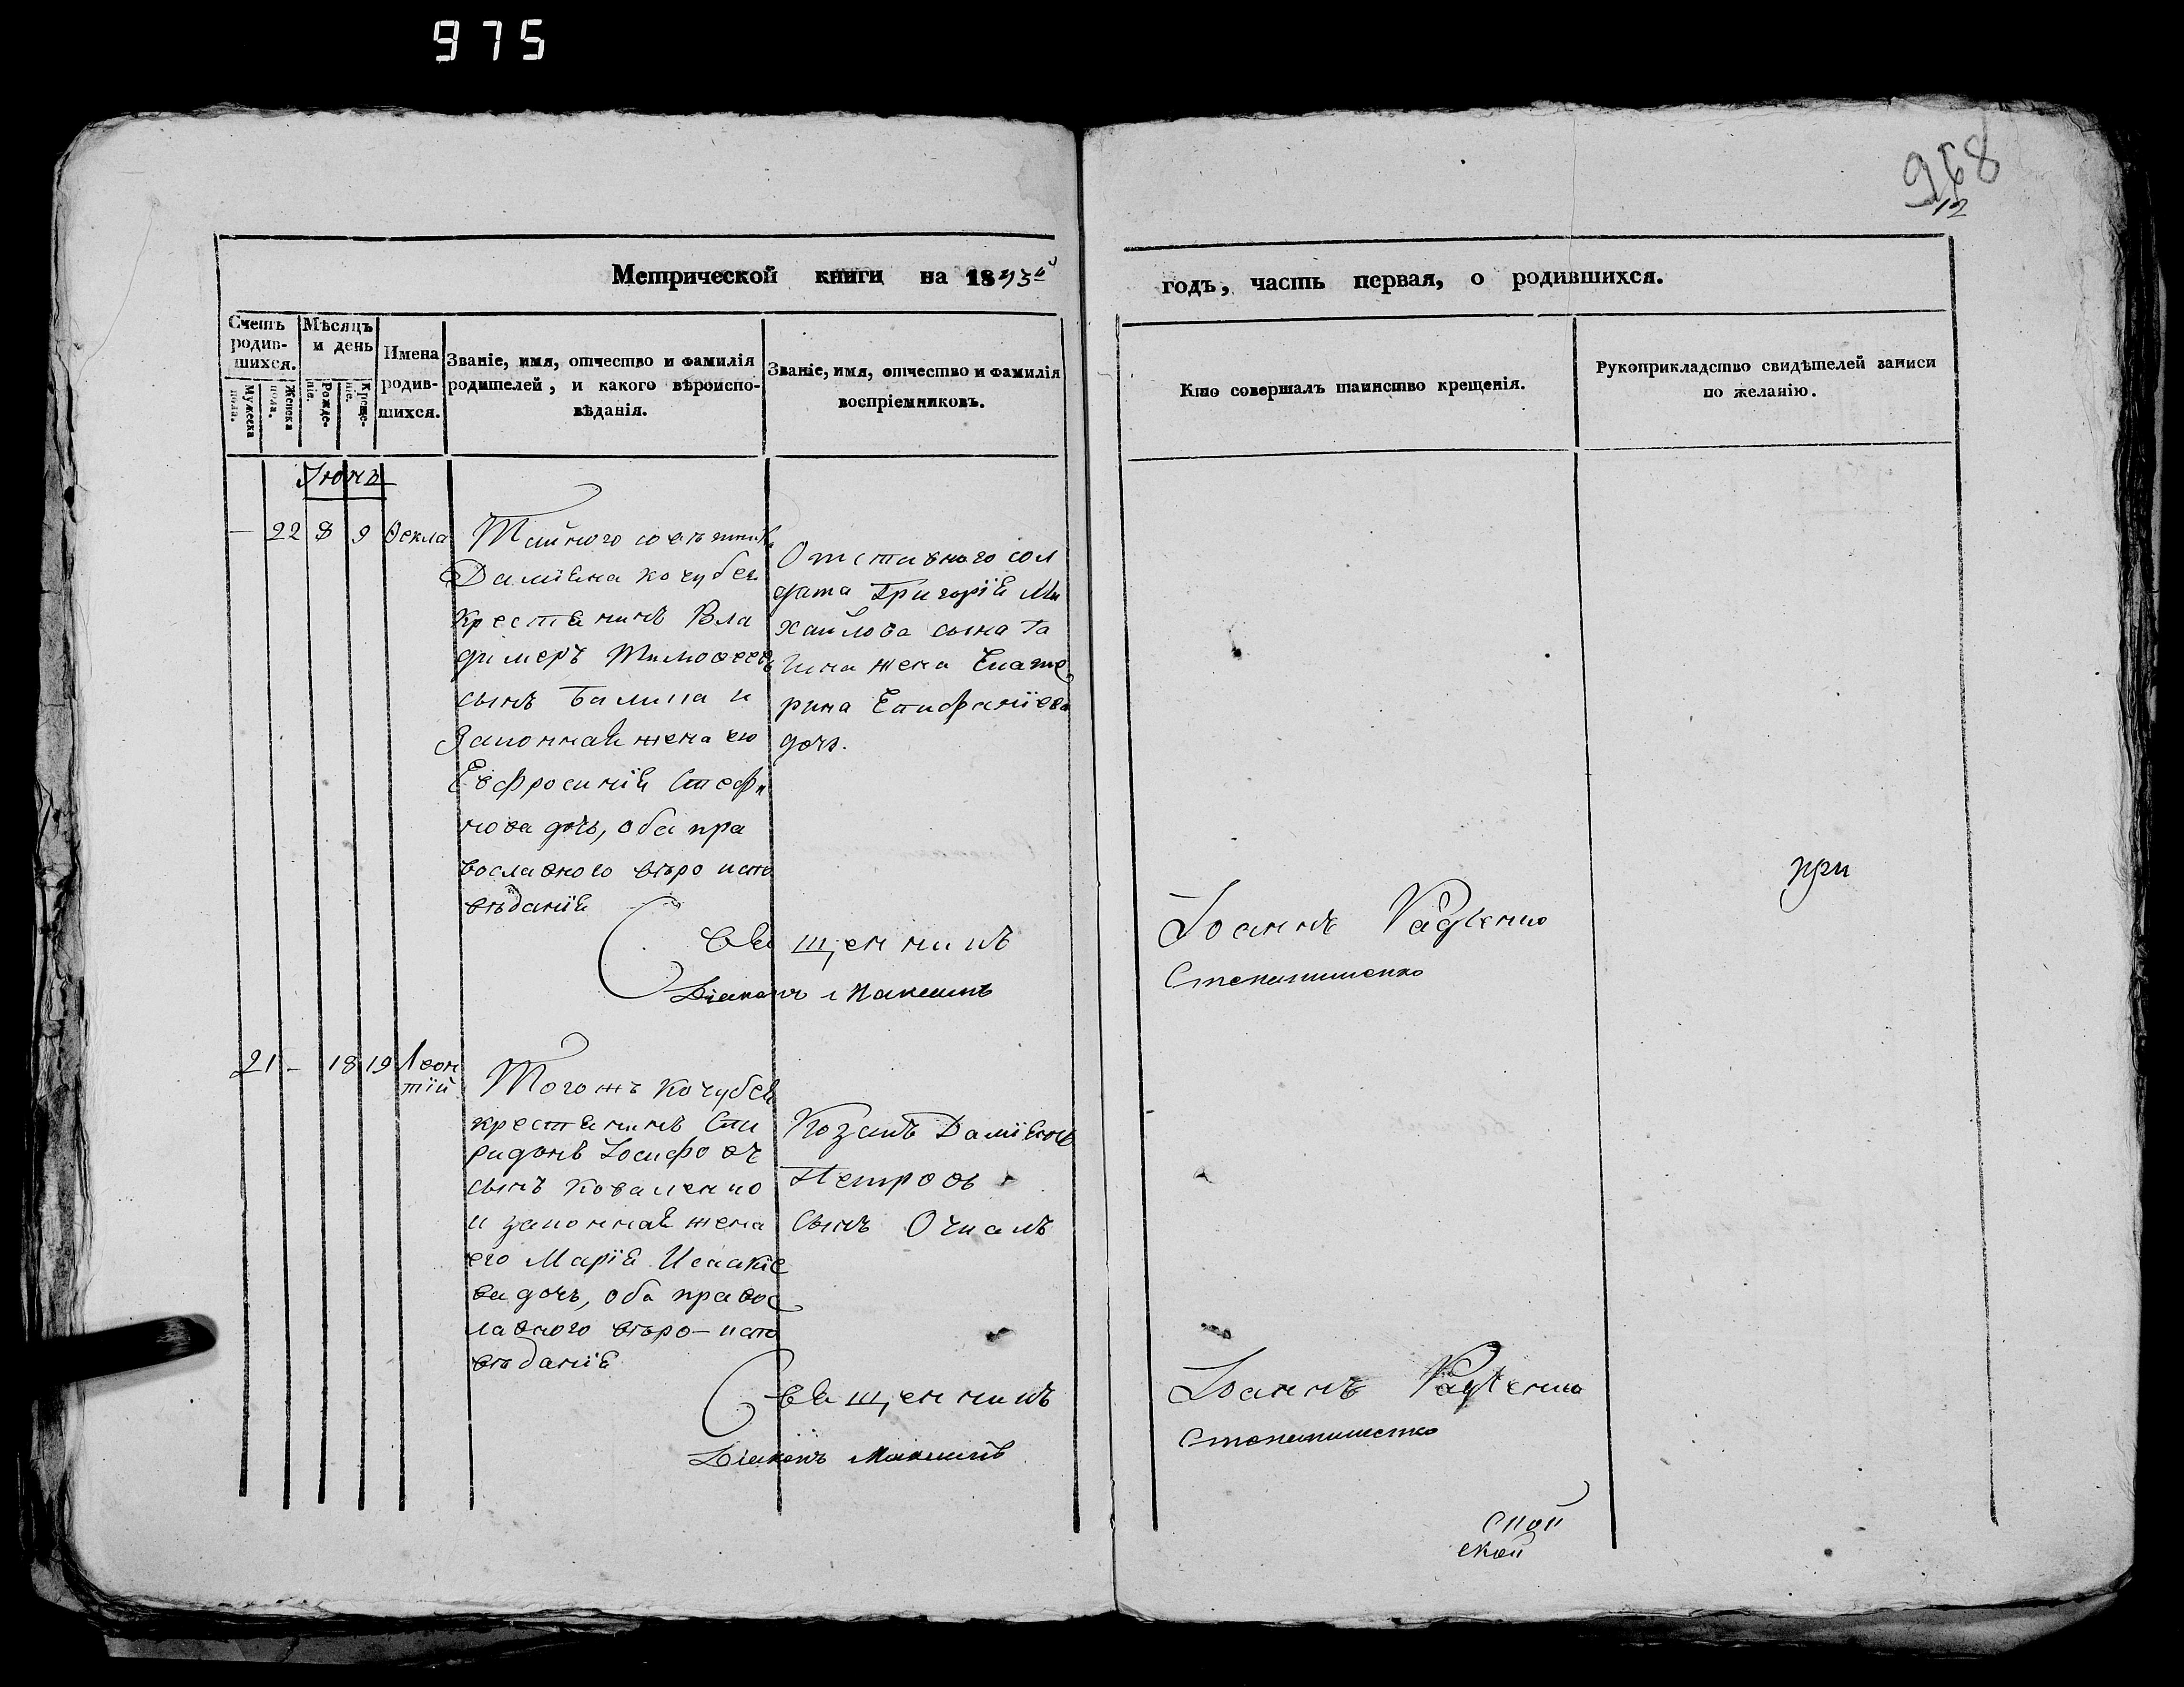 975
968
12
Метрической книги на 1843й
годъ, часть первая, о родившихся.
Счетъ родив-
шихся.
Мужеска пола.
Женска пола.
Мѣсяцъ и день
Рожде-
ніе.
Креще-
ніе.
Имена
родив-
шихся.
Званіе, имя, отчество и фамилія
родителей, и какого вѣроиспо-
вѣданія.
Званіе, имя, отчество и фамилія
воспріемниковъ.
Кто совершалъ таинство крещенія.
Рукоприкладство свидѣтелей записи
по желанію.
Іюнь
— 22 8 9 Ѳекла
Тайного совѣтника
Даміяна Кочубея
крестянинъ Вла
димеръ Тимоѳеевъ
сынъ и
законная жена его
Евфросинія Стефа
нова дочь, оба пра
вославного вѣроиспо
вѣданія
Отставного сол
дата Григорія Ми
хайлова сына
жена Екате
рина Епифаніева
дочь.
Священникъ Іоаннъ
Діаконъ Максимъ
при
21 – 18 19 Леон
тій
Тогожъ Кочубея
крестянинъ Спи
ридонъ Іосифовъ
сынъ Коваленко
и законная жена
его Марія Исакіе
ва дочь, оба правос
лавного вѣро-испо
вѣданія
Козакъ Даміянъ
Петровъ
сынъ
Священникъ Іоаннъ
Діаконъ Максимъ
ской
ской